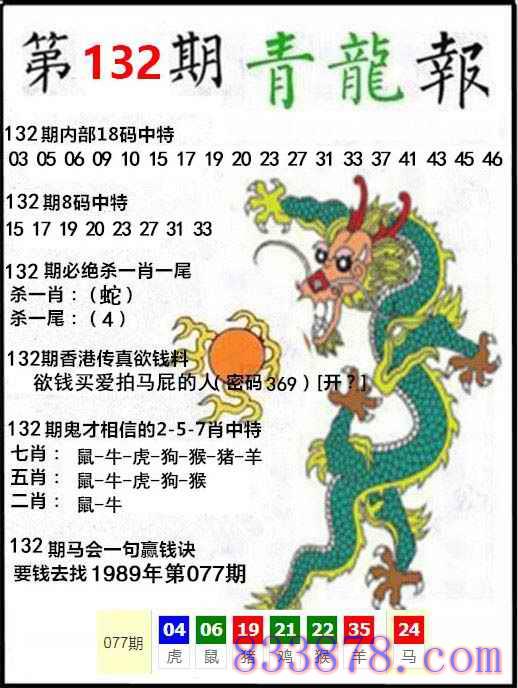 第132期青龍報
132期内部18码中特
03 05 06 09 10 15 17 19 20 23 27 31 33 37 41 43 45 46
132期8码中特
15 17 19 20 23 27 31 33
132期必绝杀一肖一尾
杀一肖：(蛇)
杀一尾：(4)
132期香港传真欲钱料
欲钱买爱拍马屁的人(密码369)[开？]
132期鬼才相信的2-5-7肖中特
七肖：鼠-牛-虎-狗-猴-猪-羊
五肖：鼠-牛-虎-狗-猴
二肖：鼠-牛
132期马会一句赢钱诀
要钱去找1989年第077期
077期 04 06 19 21 22 35 24
虎 鼠 猪 鸡 猴 羊 马
833878.com